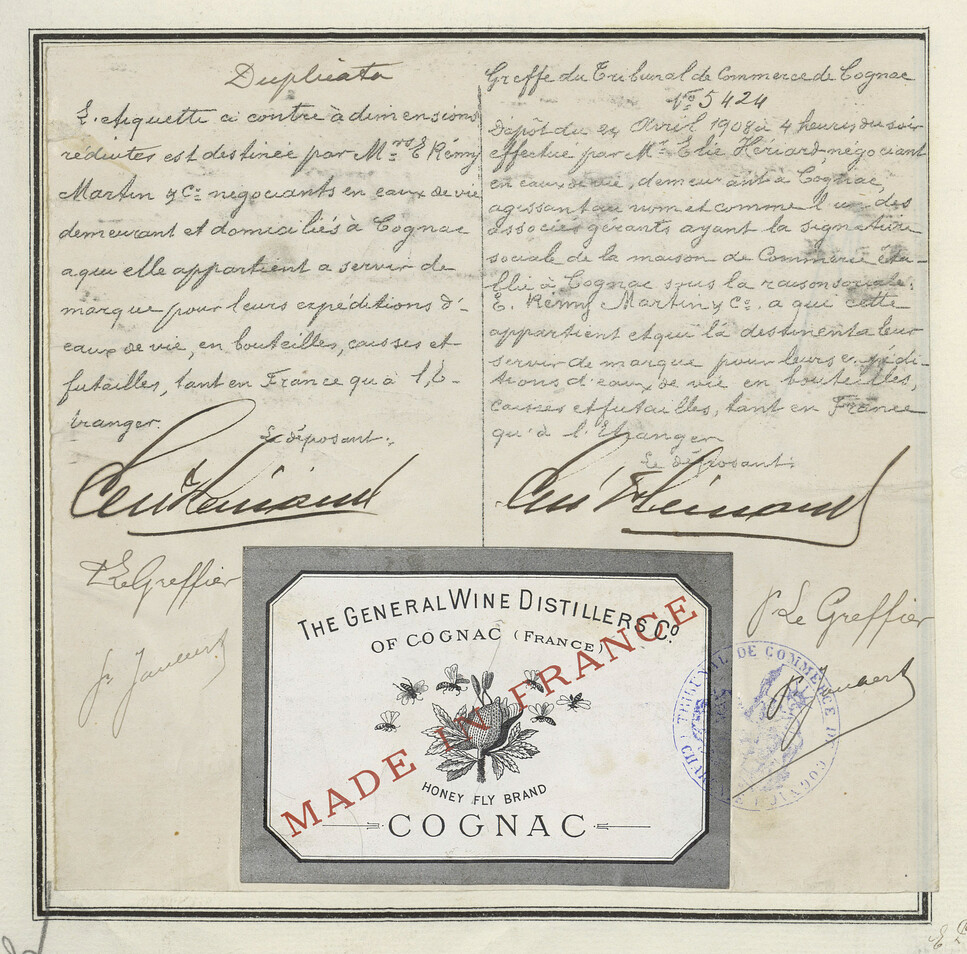 Duplicata
L'étiquette ci contre à dimensions
réduites est destinée par Mrs E Rémy
Martin & Cie négociants en eaux de vie
demeurant et domiciliés à Cognac
a qui elle appartient a servir de
marque pour leurs expéditions d'-
eaux de vie, en bouteilles, caisses et
futailles, tant en France qu'à l'É-
tranger.
Le déposant:
Le Greffier
Greffe du Tribunal de Commerce de Cognac
No 5424
Dépôt du 24 Avril 1908 à 4 heures du soir
effectué par Mr Elie Hériard, négociant
en eaux de vie, demeurant à Cognac,
agissant au nom et comme l'un des
associés gérants ayant la signature
sociale de la maison de Commerce éta-
blie à Cognac sous la raison sociale:
E. Rémy Martin & Co. a qui cette
appartient et qui la destinent a leur
servir de marque pour leurs expédi-
tions d'eaux de vie en bouteilles,
caisses et futailles, tant en France
qu'à l'Etranger
Le déposant:
P Le Greffier
THE GENERAL WINE DISTILLERS Co
OF COGNAC (FRANCE)
MADE IN FRANCE
HONEY FLY BRAND
COGNAC
TRIBUNAL DE COMMERCE DE COGNAC